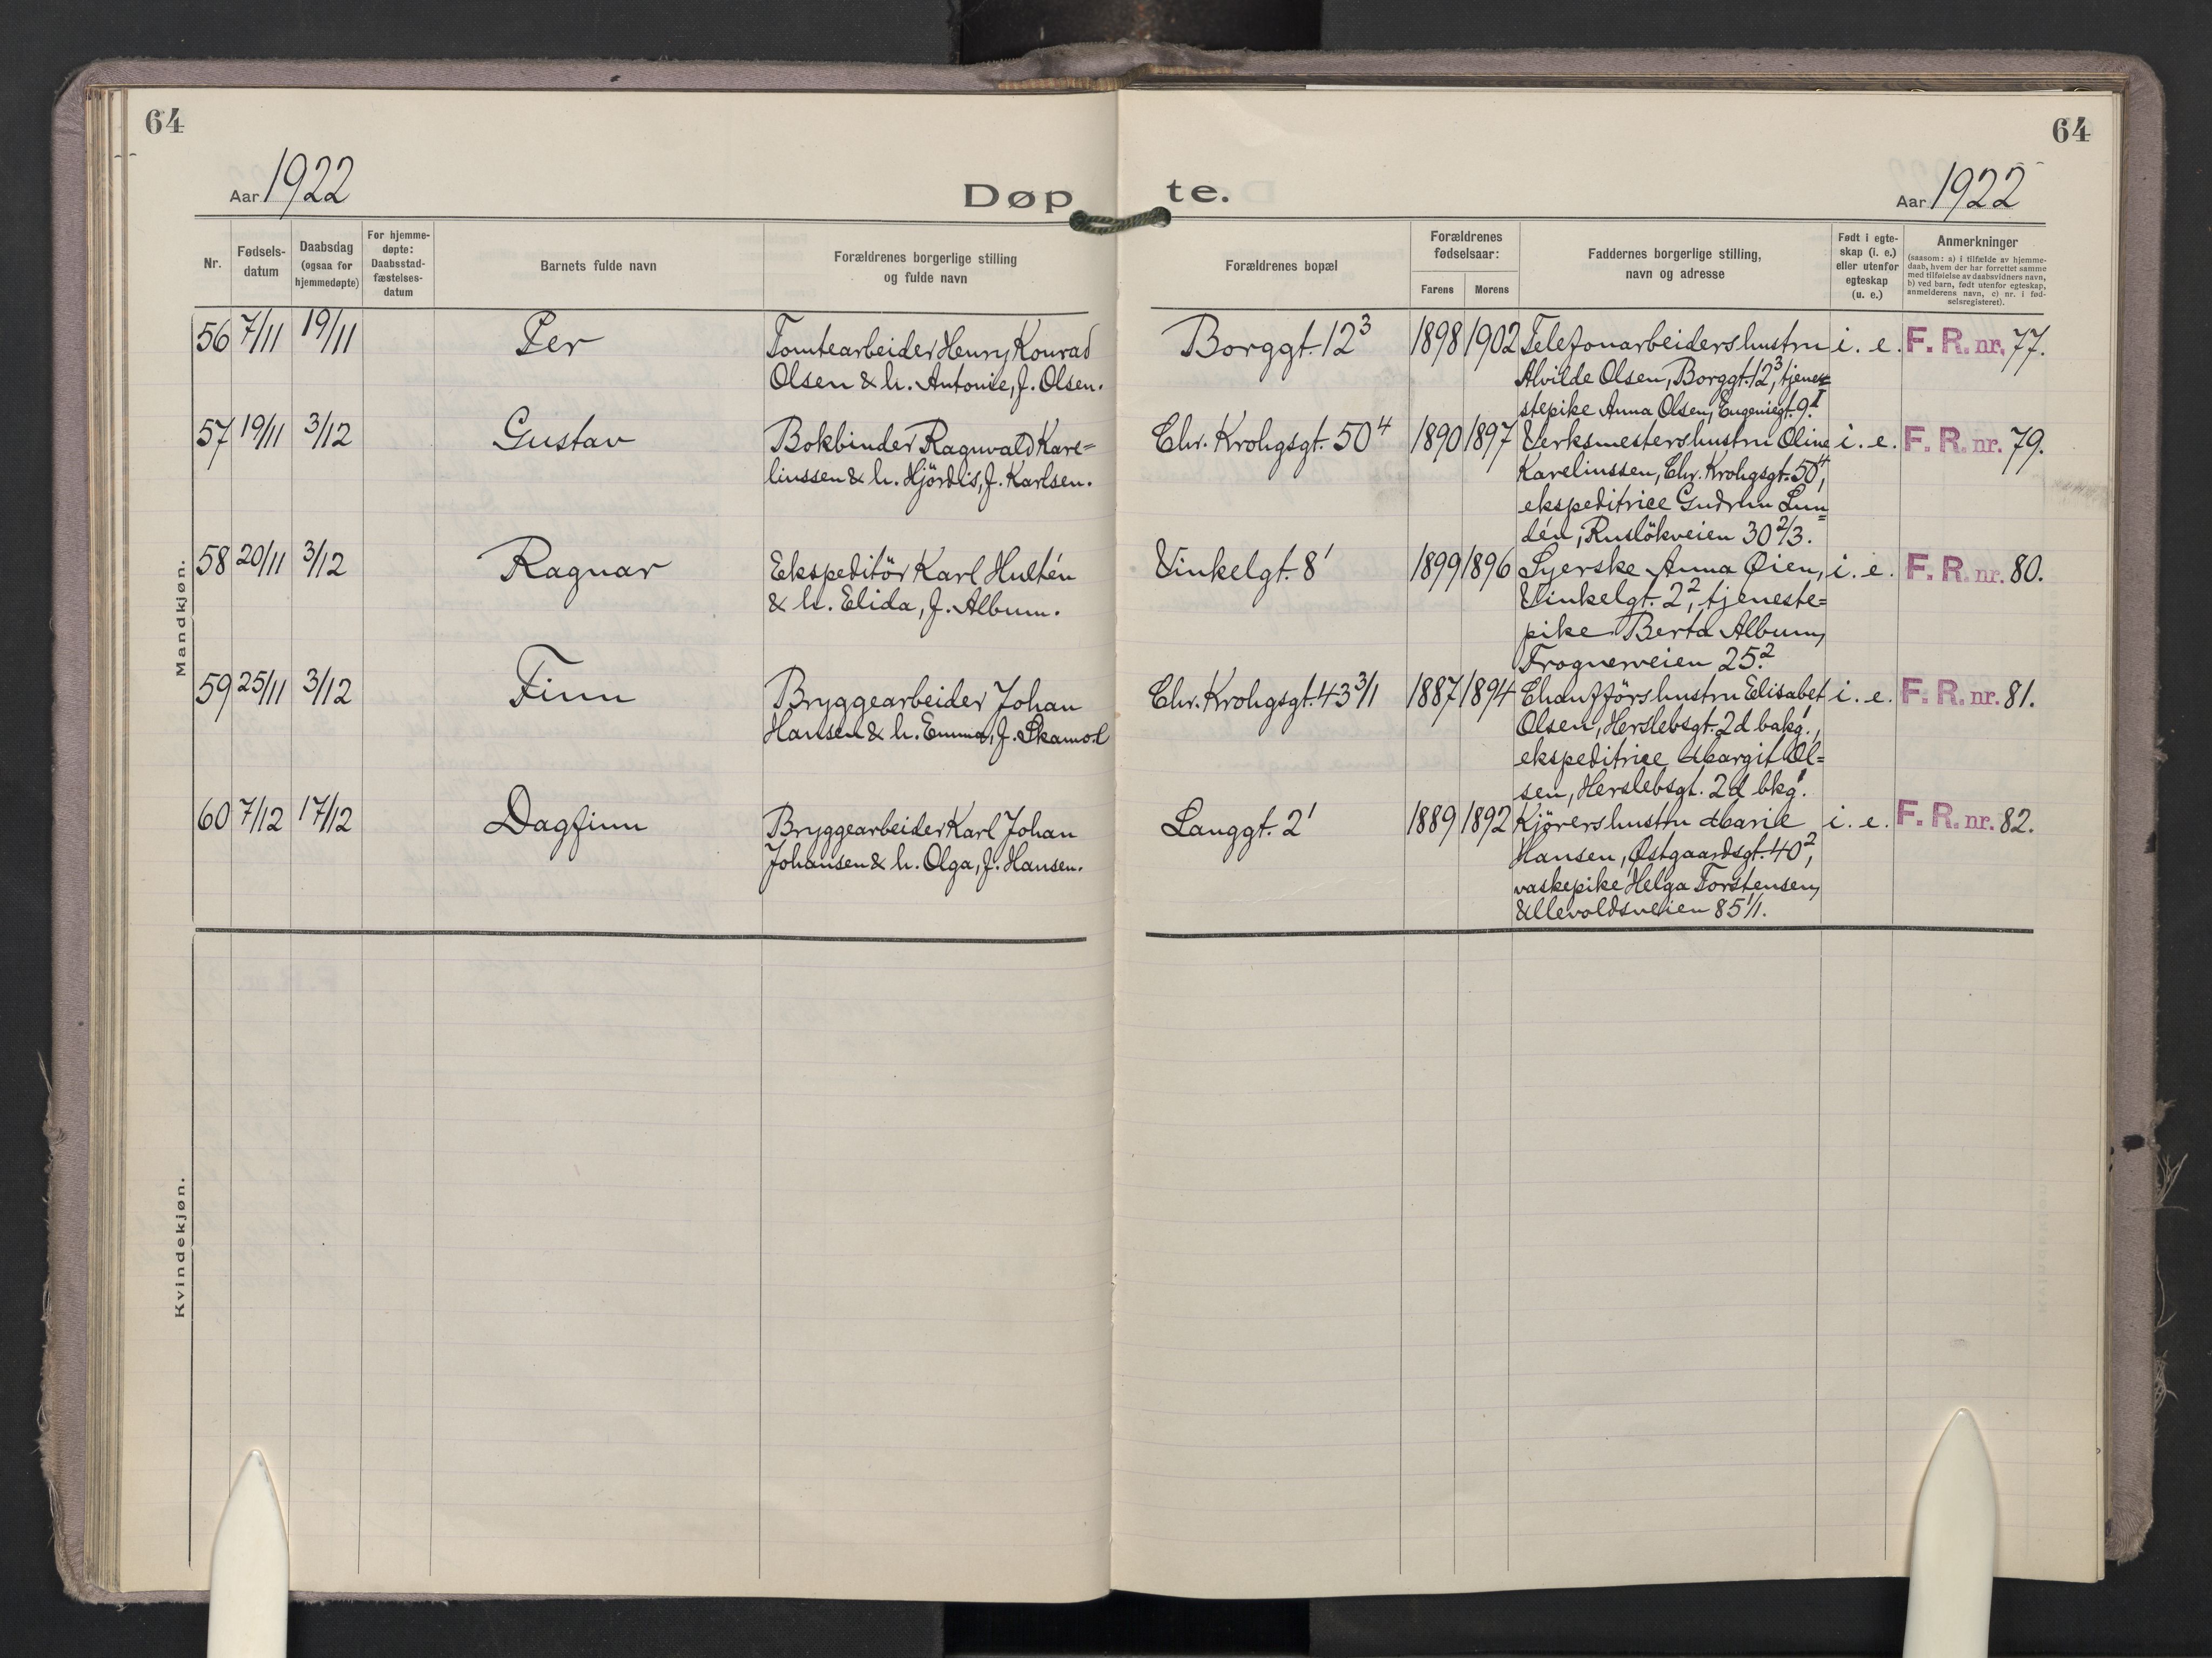 64
64
Aar 1922
Døpte.
Aar 1922
Nr.
Fødsels-
datum
Daabsdag
(ogsaa for
hjemmedøpte)
For hjemme-
døpte:
Daabsstad-
fæstelses-
datum
Barnets fulde navn
Forældrenes borgerlige stilling
og fulde navn
Forældrenes bopæl
Forældrenes
fødselsaar:
Farens
Morens
Faddernes borgerlige stilling,
navn og adresse
Født i egte-
skap (i. e.)
eller utenfor
egteskap
(u. e.)
Anmerkninger
(saasom: a) i tilfælde av hjemme-
daab, hvem der har forrettet samme
med tilføielse av daabsvidners navn,
b) ved barn, født utenfor egteskap,
anmelderens navn, c) nr. i fød-
selsregisteret).
Mandkjøn.
56 7/11 19/11 Per
Tomtearbeider Henry Konrad
Olsen & h. Antonie, f. Olsen.
Borggt. 12³ 1898 1902
Telefonarbeidershustru
Alvilde Olsen, Borggt. 12³, tjene=
stepike Anna Olsen, Eugeniegt. 9.I
i. e. F. R. nr. 77.
57 19/11 3/12 Gustav
Bokbinder Ragnvald Kare=
linssen & h. Hjördis, f. Karlsen.
Chr. Krohgsgt. 50⁴ 1890 1897
Verksmestershustru Oline
Karelinssen, Chr. Krohgsgt. 50⁴,
ekspeditrice Gudrun Lun=
dén, Ruslökveien 30 2/3.
i. e. F. R. nr. 79.
58 20/11 3/12 Ragnar
Ekspeditör Karl Hultén
& h. Elida, f. Album.
Vinkelgt. 8¹ 1899 1896
Syerske Anna Øien,
Vinkelgt. 2², tjeneste=
pike Berta Album,
Frognerveien 25.²
i. e. F. R. nr. 80.
59 25/11 3/12 Finn
Bryggearbeider Johan
Hansen & h. Emma, f. Skamol
Chr. Krohgsgt. 43 3/1 1887 1894
Chaufförshustru Elisabet
Olsen, Herslebsgt. 2d bakg.¹,
ekspeditrice Margit Ol=
sen, Herslebsgt. 2d bkg.¹
i. e. F. R. nr. 81.
60 7/12 17/12 Dagfinn
Bryggearbeider Karl Johan
Johansen & h. Olga, f. Hansen.
Langgt. 2¹ 1889 1892
Kjörershustru Marie
Hansen, Østgaardsgt. 40²,
vaskepike Helga Torstensen,
Ullevoldsveien 85 1/1.
i. e. F. R. nr. 82.
Kvindekjøn.